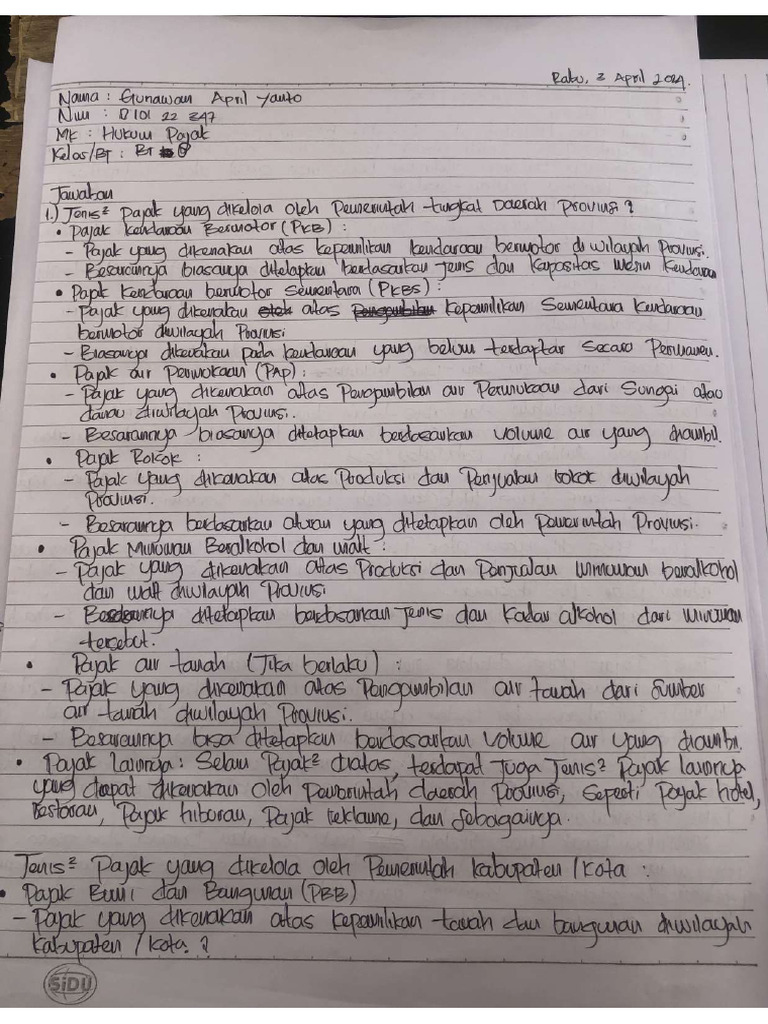 Rabu, 3 April 2024.
Nama : Gunawan April Yanto
Nim : D 101 22 347
Mk : Hukum Pajak
Kelas/BT : BT 8
Jawaban
1.) Jenis² Pajak yang dikelola oleh Pemerintah tingkat Daerah Provinsi ?
• Pajak Kendaraan Bermotor (PKB) :
- Pajak yang dikenakan atas kepemilikan kendaraan bermotor di wilayah Provinsi.
- Besarannya biasanya ditetapkan berdasarkan Jenis dan Kapasitas mesin Kendaraan
• Pajak Kendaraan bermotor Sementara (PKBS) :
- Pajak yang dikenakan atas Kepemilikan Sementara Kendaraan
bermotor diwilayah Provinsi
- Biasanya dikenakan pada kendaraan yang belum terdaptar Secara Permanen.
• Pajak air Permukaan (PAP) :
- Pajak yang dikenakan atas Pengambilan air Permukaan dari Sungai atau
danau diwilayah Provinsi.
- Besarannya biasanya ditetapkan berdasarkan volume air yang diambil.
• Pajak Rokok :
- Pajak yang dikenakan atas Produksi dan Penjualan rokok diwilayah
Provinsi.
- Besarannya berdasarkan aturan yang ditetapkan oleh Pemerintah Provinsi.
• Pajak Minuman Beralkohol dan malt :
- Pajak yang dikenakan atas Produksi dan Penjualan minuman beralkohol
dan malt diwilayah Provinsi
- Besarannya ditetapkan berdasarkan Jenis dan Kadar alkohol dari minuman
tersebut.
• Pajak air tanah (Jika berlaku) :
- Pajak yang dikenakan atas Pengambilan air tanah dari Sumber
air tanah diwilayah Provinsi.
- Besarannya bisa ditetapkan berdasarkan Volume air yang diambil.
• Pajak lainnya : Selain Pajak² diatas, terdapat Juga Jenis² Pajak lainnya
yang dapat dikenakan oleh Pemerintah daerah Provinsi, Seperti Pajak hotel,
restoran, Pajak hiburan, Pajak reklame, dan sebagainya.
Jenis² Pajak yang dikelola oleh Pemerintah Kabupaten / Kota :
• Pajak Bumi dan Bangunan (PBB)
- Pajak yang dikenakan atas Kepemilikan tanah dan bangunan diwilayah
Kabupaten / Kota. ?
SiDU